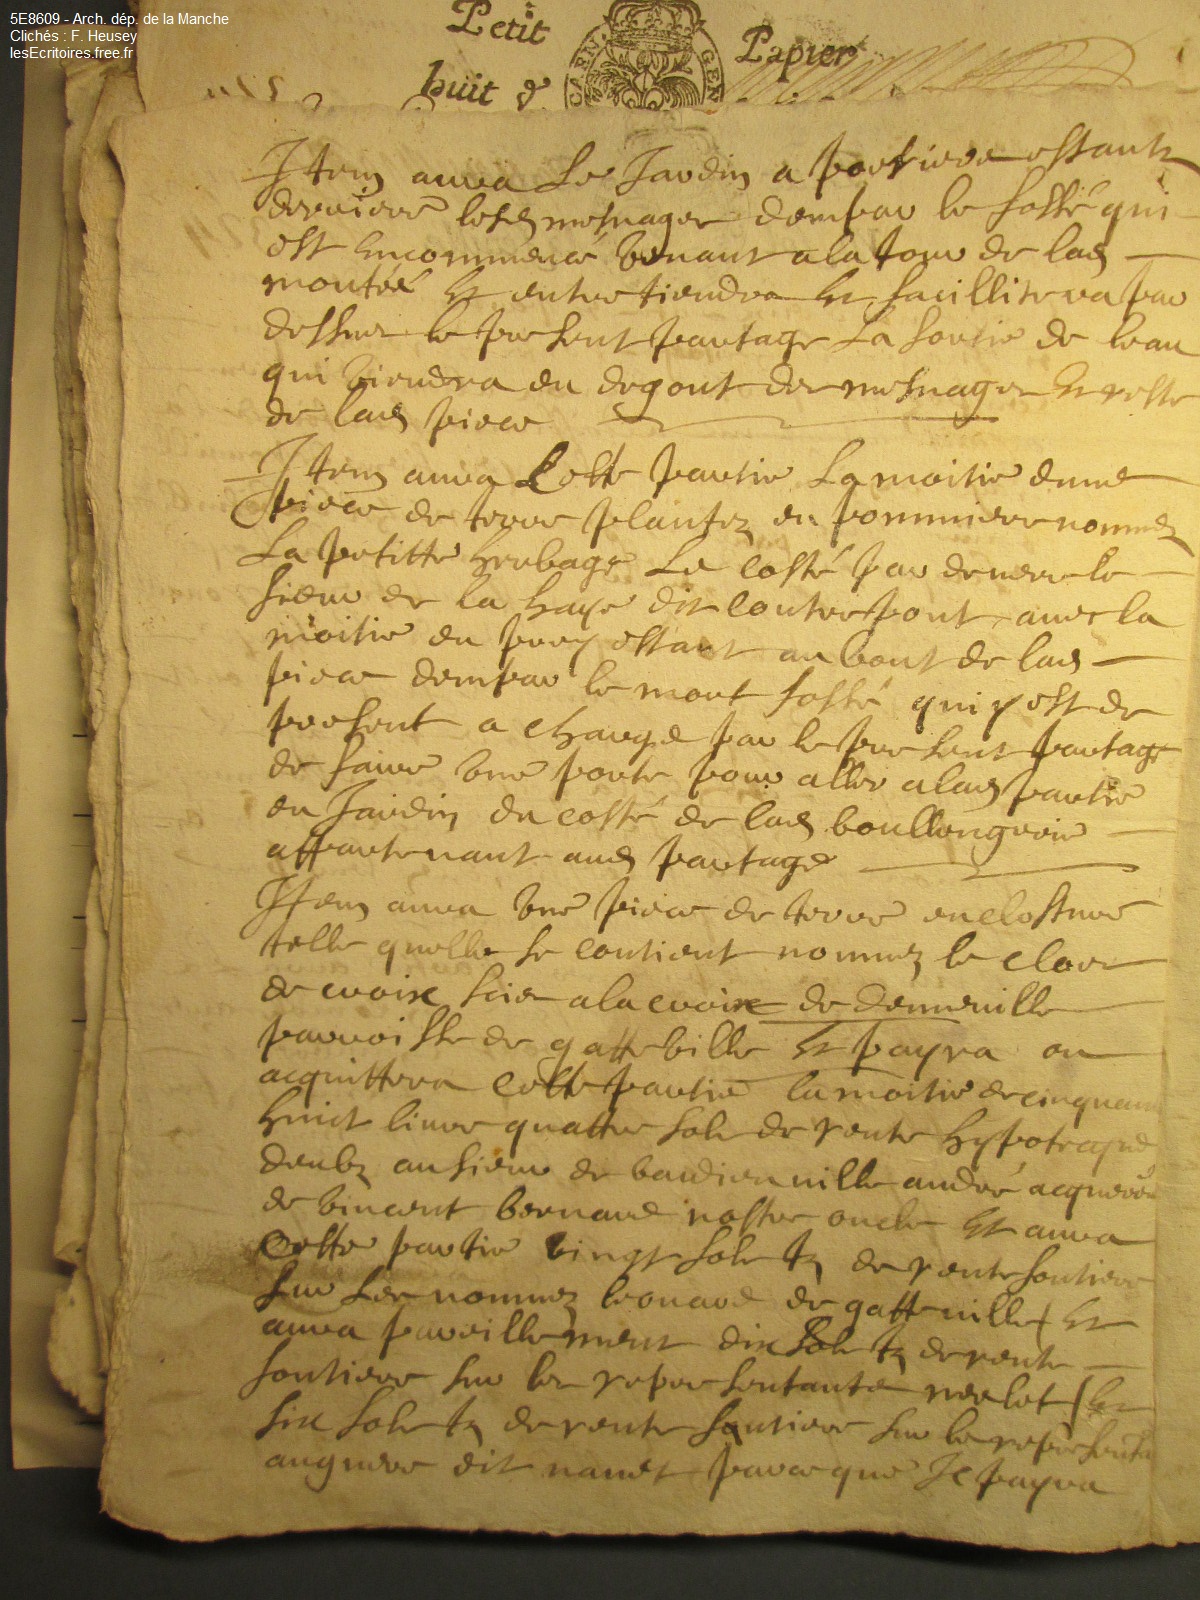 5E8609 - Arch. dép. de la Manche
Clichés : F. Heusey
lesEcritoires.free.fr
Petit Papier
huit d
GEN
Item aura Le Jardin a porriere estantz
derriere lesd mesnages dempar le fossé qui
est encommencé venant a la tour de lad
montée Et entretiendra Et facillitera par
dessus le present partage La sortie de leau
qui viendra du degout des mesnages Et reste
de lad piece
Item aura Cette partie La moitie dune
piece de terre plantez en pommiers nommez
La petitte herbage Le costé par devers le
sieur de la haye dit Contrepont avec la
moitie du prey estant au bout de lad
piece dempar le mort fossé qui y est de
present a charge par le present partage
de faire une porte pour aller a lad partie
du Jardin du costé de lad boullengerie
appartenant aud partage
Item aura une piece de terre en closture
telle quelle se contient nommez le clos
de croix scis a la croix de denneville
parroisse de gatteville Et payra ou
acquittera Cette partie la moitie de cinquante
huict livres quattre sols de rente hypoteque
deubz au sieur de bardienville andré acquereur
de vincent bernard nostre oncle Et aura
Cette partie vingt sols tz de rente fontiere
sur Les nommez leonard de gatteville Et
aura pareillement dix sols tz de rente
fontiere sur les representants neelot Et
six sols tz de rente fontiere sur le represent
auguere dit nanet parce que Il payra